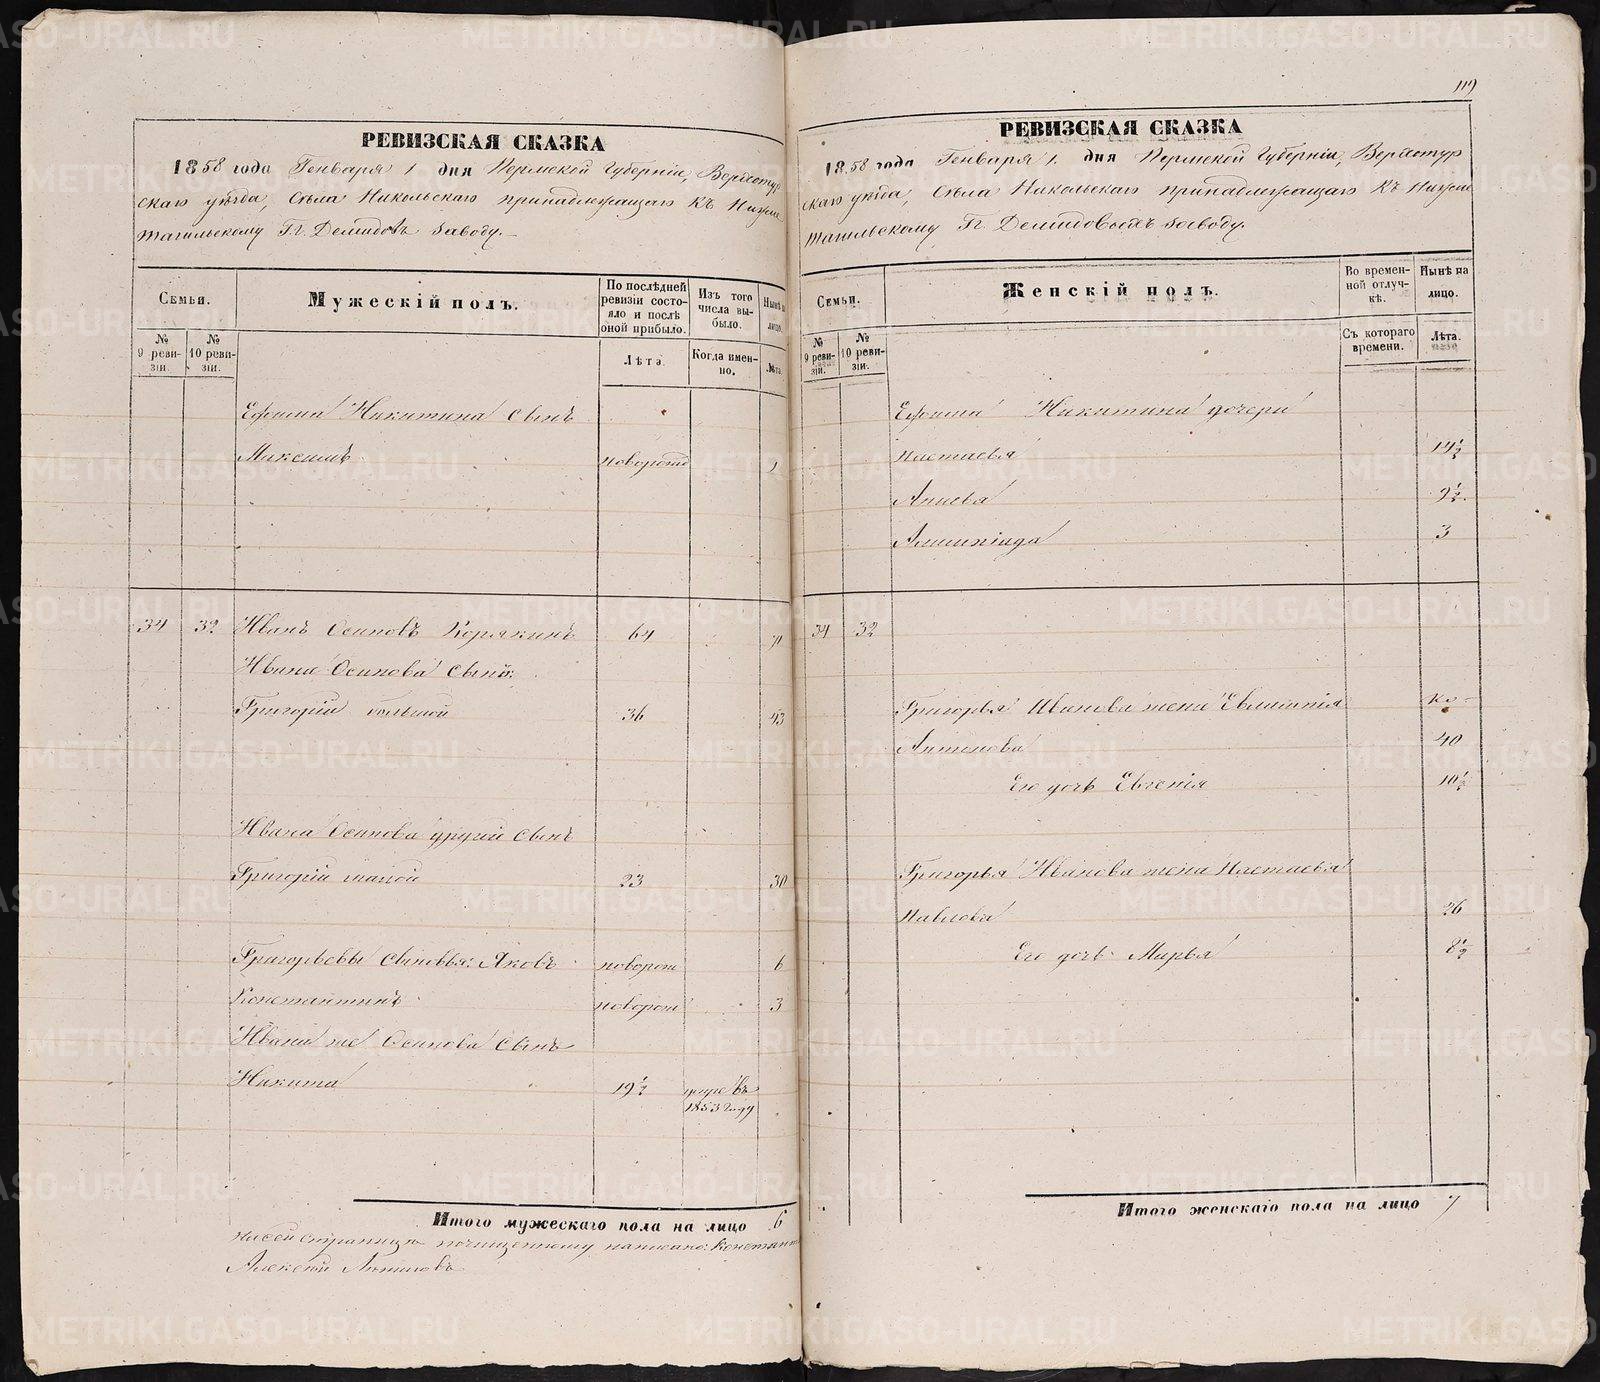 РЕВИЗСКАЯ СКАЗКА
1858 года Генваря 1 дня Пермской Губернiи, Верхотур
скаго уѣзда, Села Никольскаго принадлежащаго къ Нижне
тагильскому Гг. Демидовъ заводу.
Семьи.
Мужескiй полъ.
По послѣдней ревизiи состояло и послѣ оной прибыло.
Изъ того числа выбыло.
Нынѣ на лицо.
№ 9 ревизiи.
№ 10 ревизiи.
Лѣта.
Когда именно.
Лѣта.
Ефима Никитина сынъ
Максимъ новорожд 1
34 32 Иванъ Осиповъ Корякинъ 64 71
Ивана Осипова сынъ:
Григорiй большой 36 43
Ивана Осипова другiй сынъ
Григорiй малой 23 30
Григорьевы сыновья: Яковъ новорож 6
Константинъ новорож 3
Ивана же Осипова сынъ
Никита 19½ въ
1853 году
Итого мужескаго пола на лицо 6
на сей страницѣ по написано: Констант
Алексѣй
119
РЕВИЗСКАЯ СКАЗКА
1858 года Генваря 1. дня Пермской Губернiи, Верхотур
скаго уѣзда, Села Никольскаго принадлежащаго къ Нижне
тагильскому Гг. Демидовыхъ заводу.
Семьи.
Женскiй полъ.
Во временной отлучкѣ.
Нынѣ на лицо.
№ 9 ревизiи.
№ 10 ревизiи.
Съ котораго времени.
Лѣта.
Ефима Никитина дочери
Настасья 14½
Апнева 9½
Алимпiада 3
34 32
Григорья Иванова жена Евлампiя
Антонова 40
Его дочь Евгенiя 10½
Григорья Иванова жена Настасья
Павлова 26
Его дочь Марья 8½
Итого женскаго пола на лицо 7
METRIKI.GASO-URAL.RU